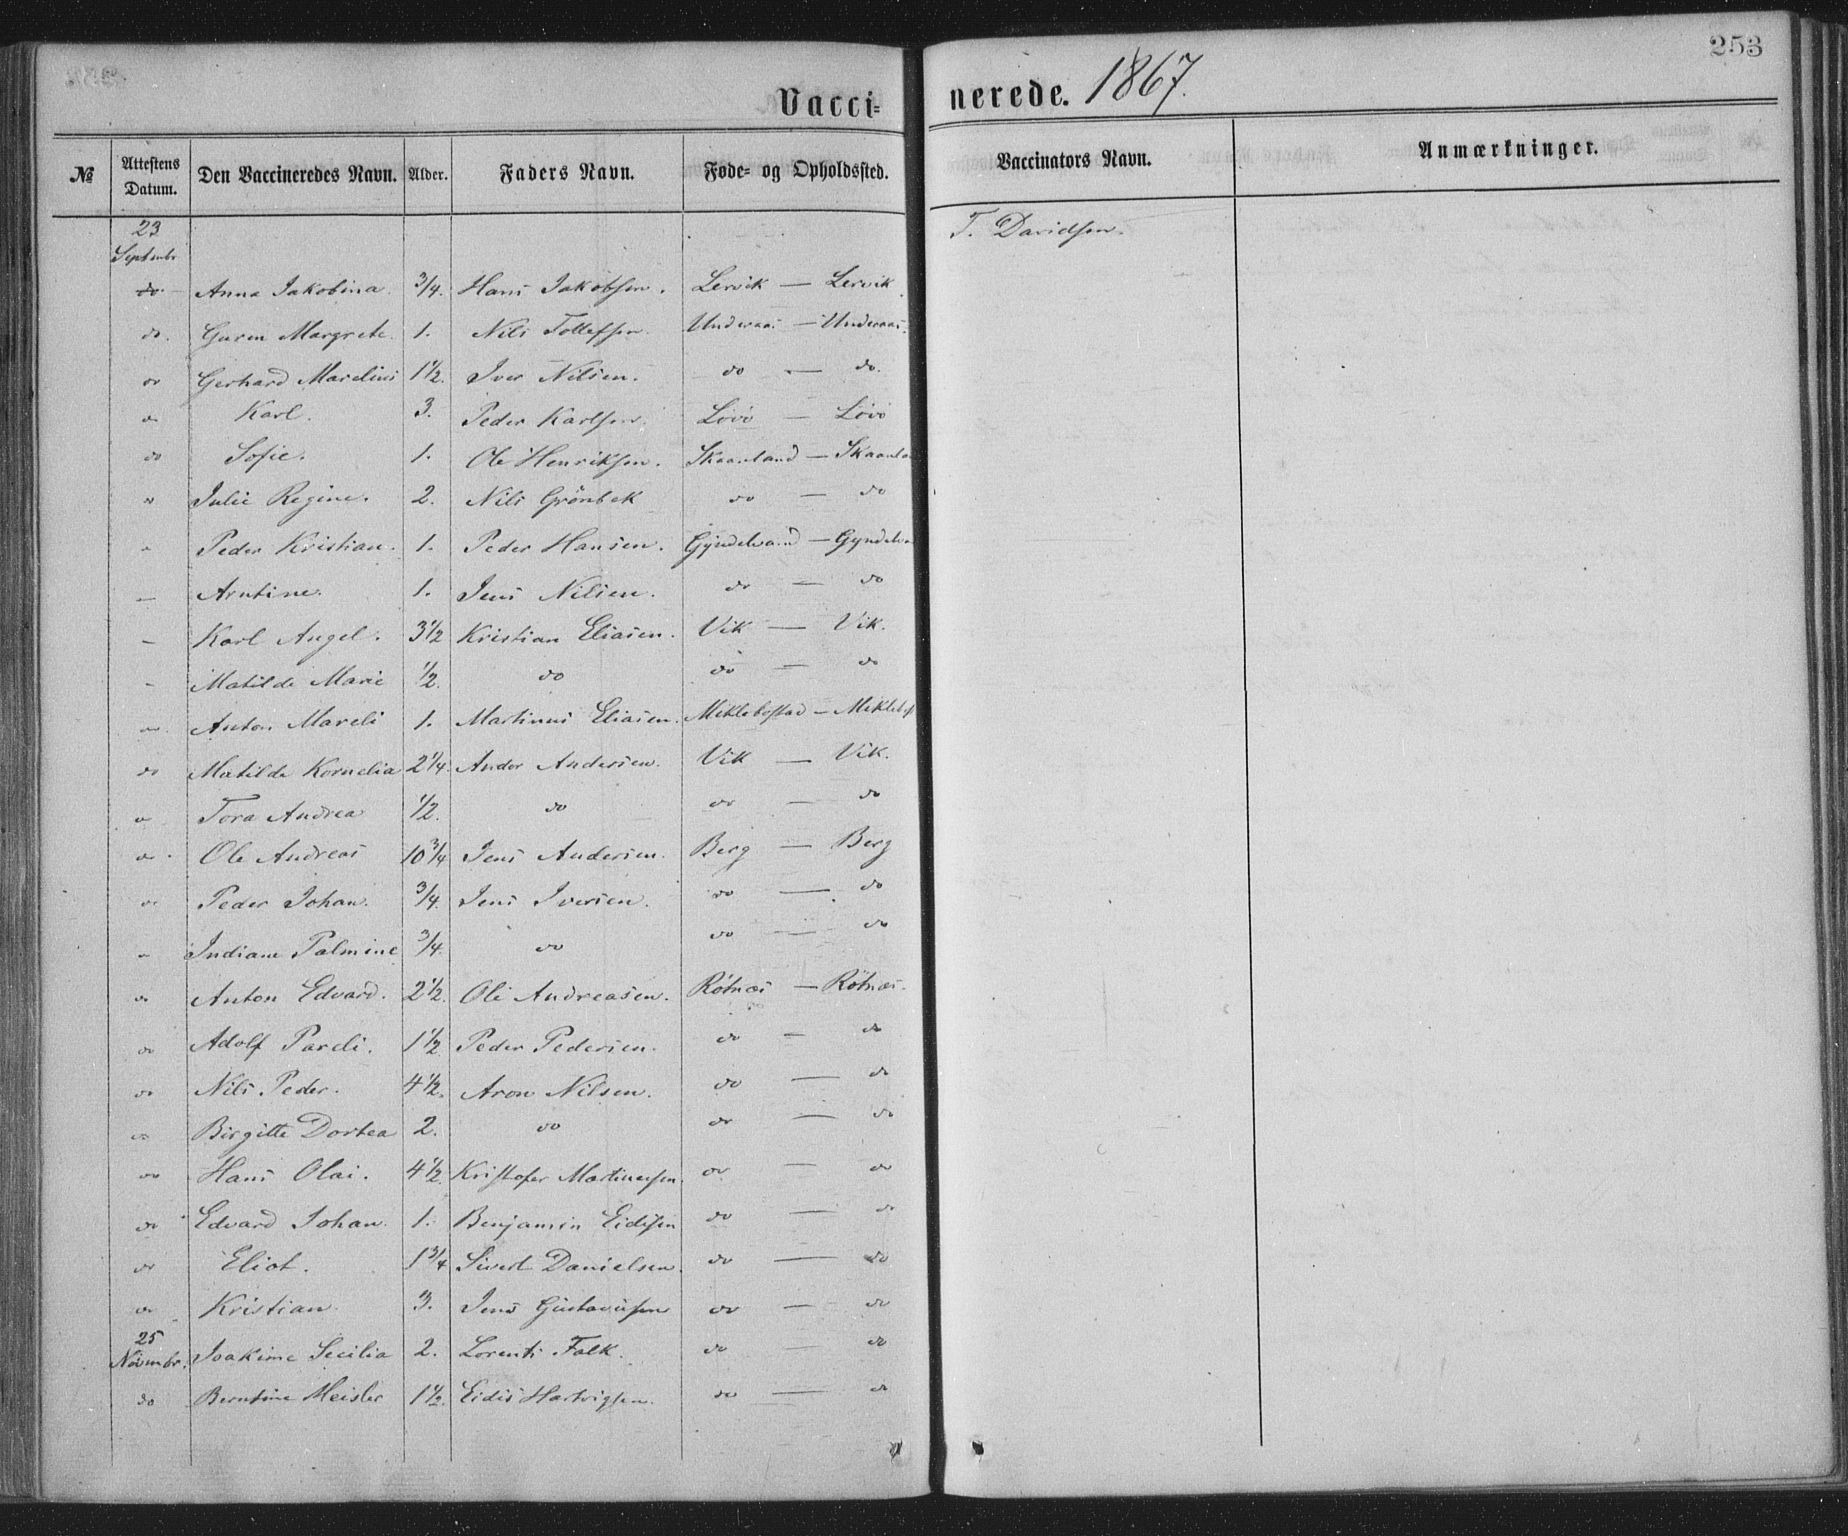 253
Vacci- nerede. 1867.
№ Attestens Datum. Den Vaccineredes Navn. Alder. Faders Navn. Føde- og Opholdssted. Vaccinators Navn. Anmærkninger.
23 Septembr T. Davidsen.
do. Anna Jakobina. 3/4. Hans Jakobsen. Lervik — Lervik.
do. Guren Margrete. 1. Nils Tollefsen. Underaas — Underaas.
do Gerhard Marelius 1 1/2. Iver Nilsen. do — do.
do Karl. 3. Peder Karlsen. Lövö — Lövö
do Sofie. 1. Ole Henriksen. Skaanland — Skaanla
" Julie Regine. 2. Nils Grönbek do — do
" Peder Kristian. 1. Peder Hansen. Gyndelvand — Gyndelv
— Arntine. 1. Jens Nilsen. do — do
— Karl Angel. 3 1/2 Kristian Eliasen. Vik — Vik.
— Matilde Marie 1/2. do do — do
do Anton Mareli 1. Martinus Eliasen. Meklebostad — Meklebost
do Matilde Kornelia 2 1/4. Andor Andersen. Vik — Vik.
do Tora Andrea 1/2. do do — do
do. Ole Andreas 10 3/4 Jens Andersen. Berg — Berg
do Peder Johan. 3/4. Jens Iversen. do — do
" Indiane Palmine 3/4. do do — do
do Anton Edvard. 2 1/2. Ole Andreasen. Rötnæs — Rötnæs.
do Adolf Pareli. 1 1/2 Peder Pedersen. do — do
do Nils Peder. 4 1/2. Aron Nilsen. do — do
do Birgitte Dortea 2. do do — do
do Hans Olai. 4 1/2 Kristofer Martinussen. do — do
do Edvard Johan. 1. Benjamin Eidissen do — do
do Eliot. 1 3/4 Sivert Danielsen. do — do
do Kristian. 3. Jens Gustavussen do — do
25 Novembr. Joakime Secilia 2. Lorents Falk. do — do
do Berntine Meisler 1 1/2. Eidis Hartvigsen. do — do